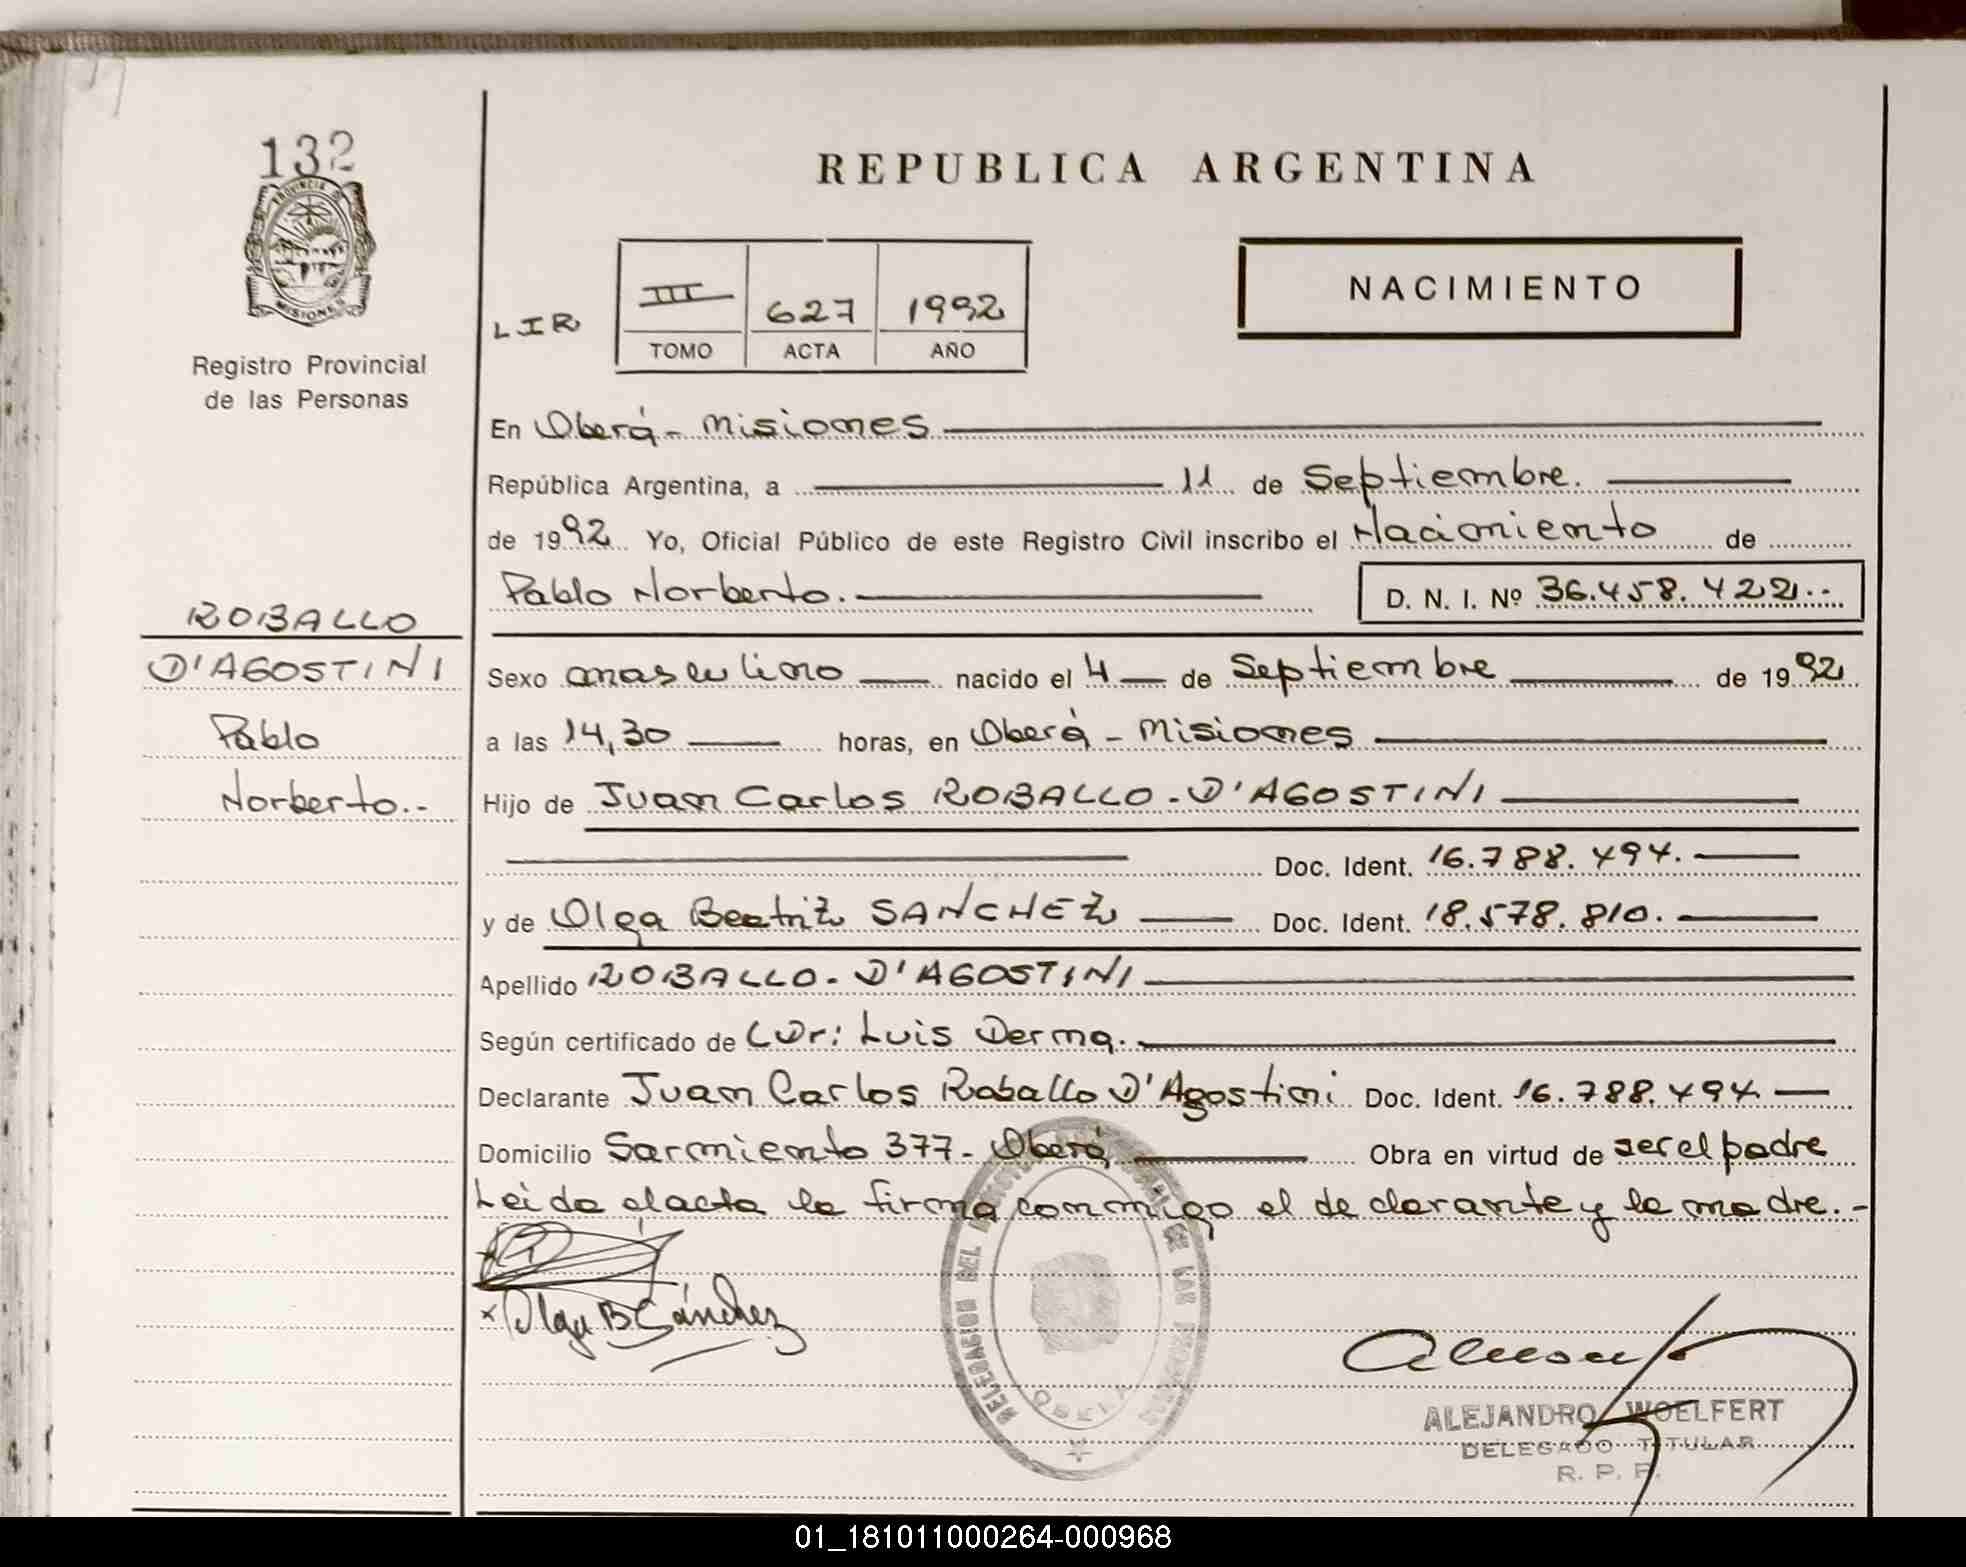 132
PROVINCIA DE
MISIONES
Registro Provincial
de las Personas
REPUBLICA ARGENTINA
NACIMIENTO
LIR
III 627 1992
TOMO ACTA AÑO
En Oberá - Misiones
República Argentina, a 11 de Septiembre.
de 1992 Yo, Oficial Público de este Registro Civil inscribo el Nacimiento de
Pablo Norberto. D. N. I. Nº 36.458.422.-
ROBALLO
D'AGOSTINI
Pablo
Norberto.-
Sexo masculino nacido el 4 de Septiembre de 1992
a las 14,30 horas, en Oberá - Misiones
Hijo de Juan Carlos ROBALLO - D'AGOSTINI
Doc. Ident. 16.788.494.
y de Olga Beatriz SANCHEZ Doc. Ident. 18.578.810.
Apellido ROBALLO - D'AGOSTINI
Según certificado de Dr: Luis Derma.
Declarante Juan Carlos Roballo D'Agostini Doc. Ident. 16.788.494.
Domicilio Sarmiento 377 - Oberá Obra en virtud de ser el padre
Leida el acta la firma conmigo el declarante y la madre.-
x Olga B Sánchez
DELEGACION DEL REGISTRO PROVINCIAL DE LAS PERSONAS
OBERA
ALEJANDRO WOELFERT
DELEGADO TITULAR
R. P. P.
01_181011000264-000968